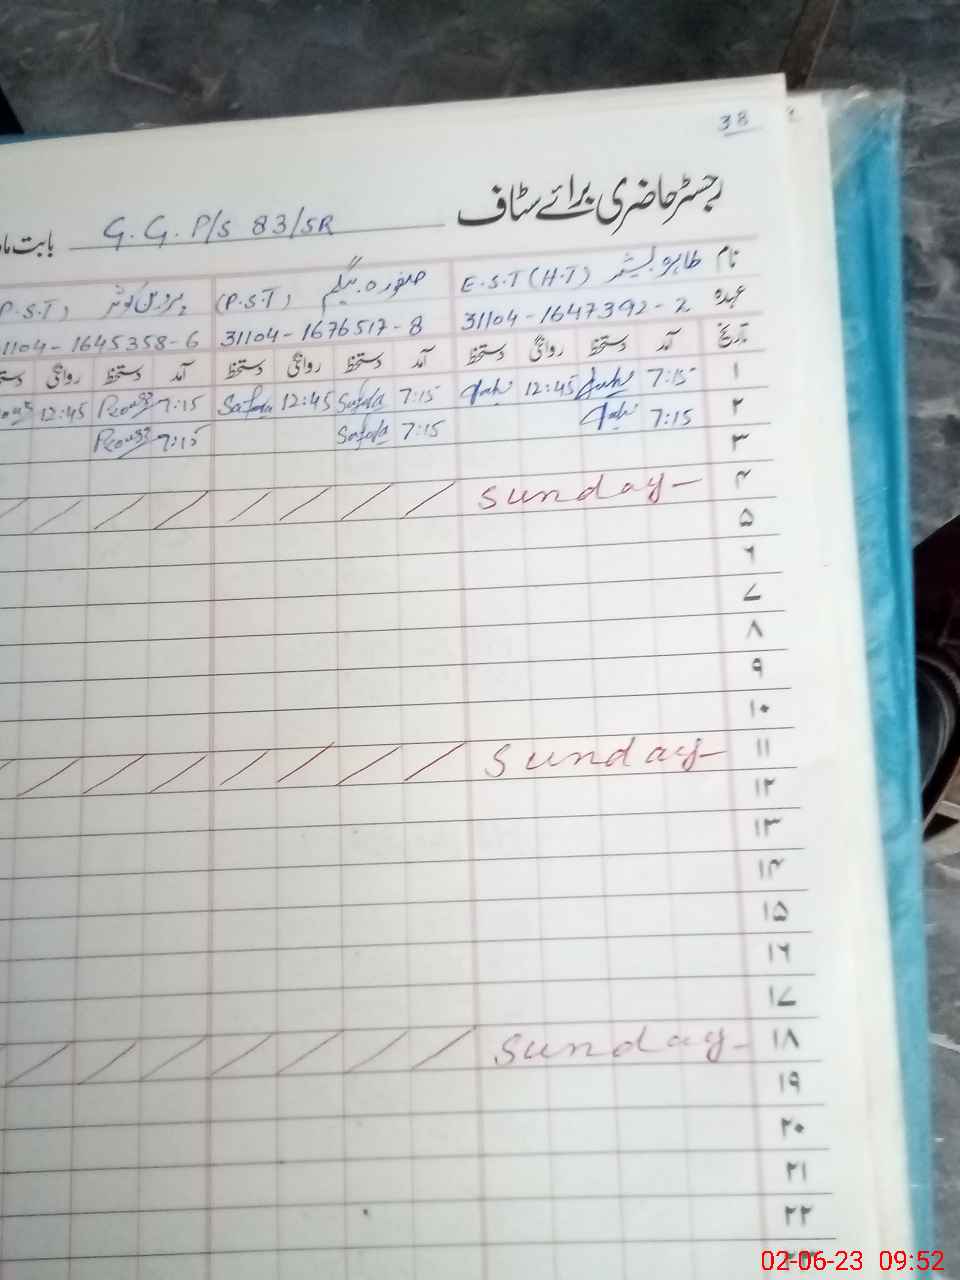 38
رجسٹر حاضری برائے سٹاف
G.G. P/S 83/SR بابت ماہ
نام طاہرہ E.S.T (H.T) صفورہ بیگم (P.S.T) پروین کوثر P.S.T)
عہدہ 31104-1647392-2 31104-1676517-8 1104-1645358-6
تاریخ آمد دستخط روانگی دستخط آمد دستخط روانگی دستخط آمد دستخط روانگی
۱ 7:15 12:45 7:15 Safola 12:45 Safola 7:15 12:45
۲ 7:15 7:15 Safola 7:15
۳
۴ Sunday
۵
۶
۷
۸
۹
۱۰
۱۱ Sunday
۱۲
۱۳
۱۴
۱۵
۱۶
۱۷
۱۸ Sunday
۱۹
۲۰
۲۱
۲۲
۲۳
02-06-23 09:52